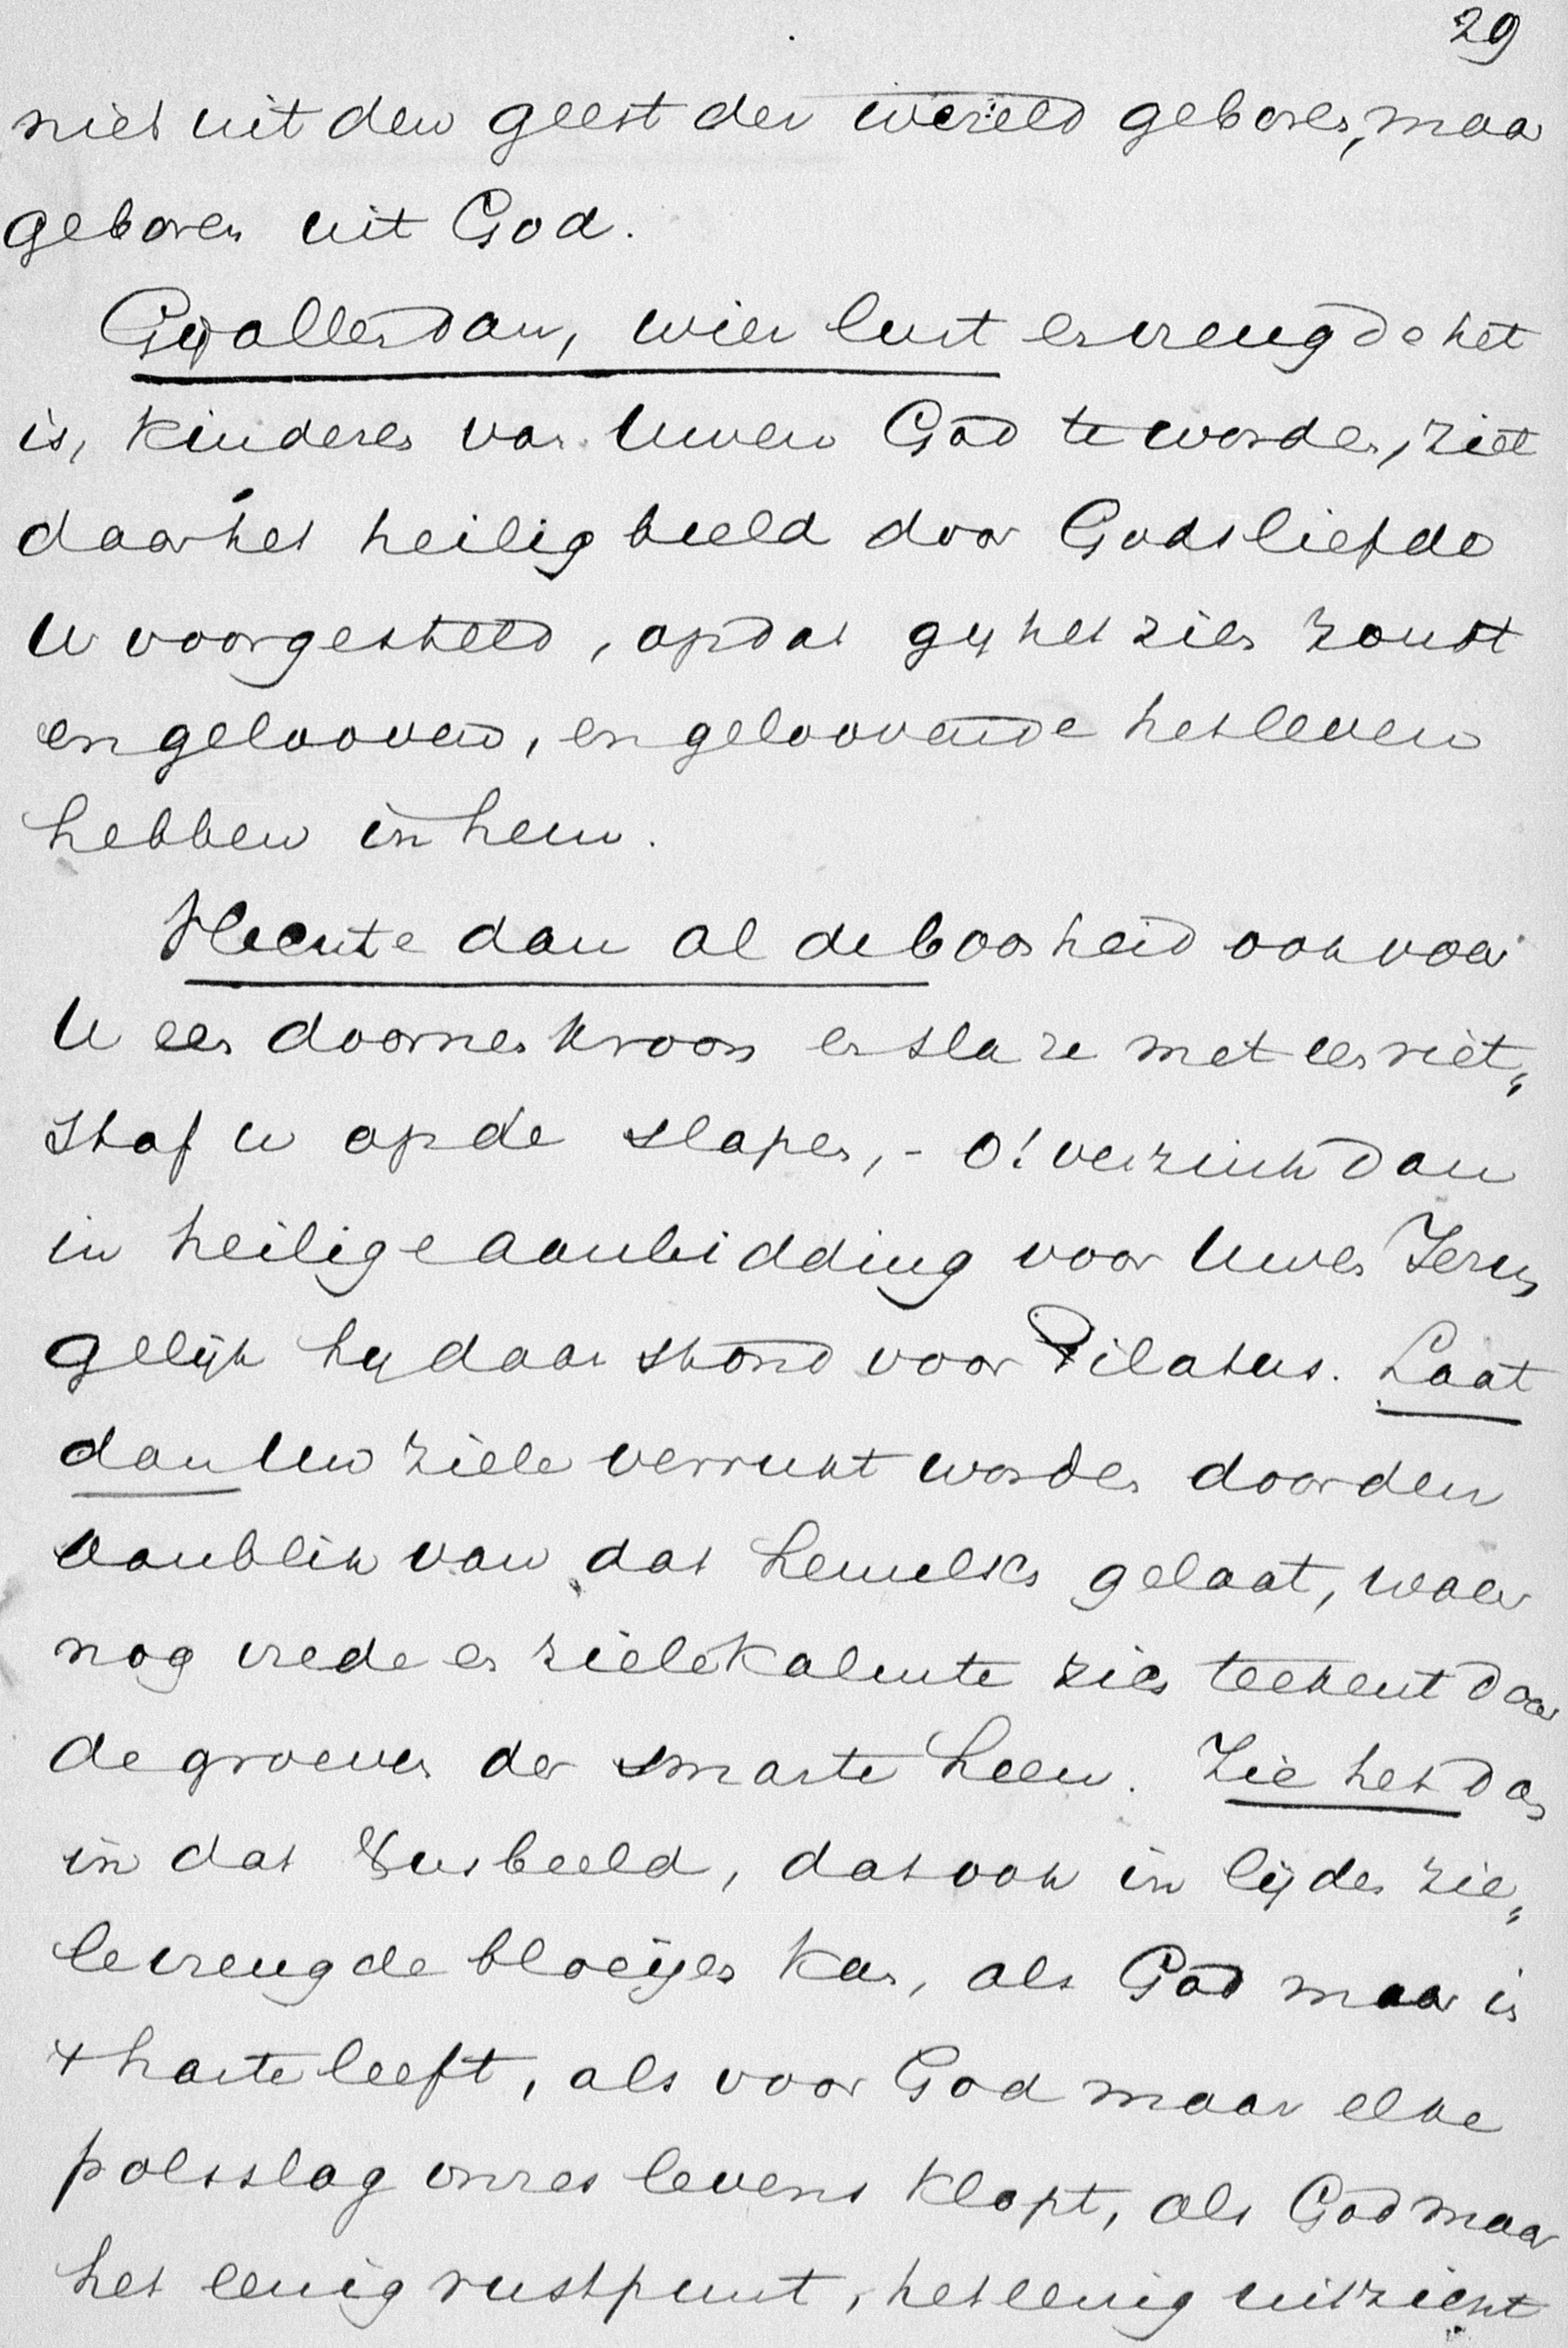 29
niet uit den geest der wereld geboren, maar
geboren uit God.
Gij allen dan, wier lust en vreugde het
is, kinderen van Uwen God te worden, ziet
daar het heilig beeld door Gods liefde
U voorgesteld, opdat gij het zien zoudt
en gelooven, en geloovende het leven
hebben in hem.
Vlechte dan al de boosheid ook voor
U een doornenkroon en sla ze met een riet„
staf u op de slapen, - O! verzink dan
in heilige aanbidding voor Uwen Jezus
gelijk hij daar stond voor Pilatus. Laat
dan Uw ziele verrukt worden door den
aanblik van dat hemelsch gelaat, waar
nog vrede en zielekalmte zich teekent door
de groeven der smarte heen. Zie het dan
in dat beeld, dat ook in lijden zie„
levreugde bloeijen kan, als God maar in
't harte leeft, als voor God maar elke
polsslag onzes levens klopt, als God maar
het eenig rustpunt, het eenig uitzicht